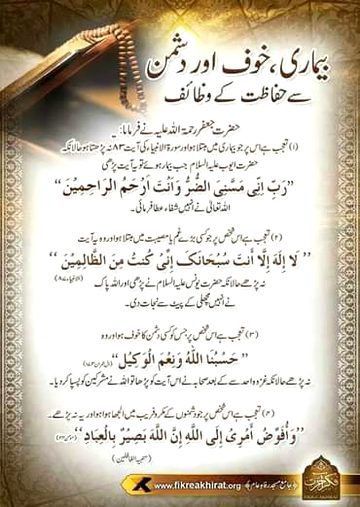 بیماری، خوف اور دشمن
سے حفاظت کے وظائف
حضرت جعفر رحمۃ اللہ علیہ نے فرمایا:
(۱) تعجب ہے اس پر جو بیماری میں مبتلا ہو اور سورۃ الانبیاء کی آیت ۸۳ نہ پڑھتا ہو حالانکہ
حضرت ایوب علیہ السلام جب بیمار ہوئے تو یہ آیت پڑھی
”رَبِّ اِنِّی مَسَّنِیَ الضُّرُّ وَاَنْتَ اَرْحَمُ الرَّاحِمِیْنَ“
اللہ تعالیٰ نے انہیں شفاء عطا فرمائی۔
(۲) تعجب ہے اس شخص پر جو کسی بڑے غم یا مصیبت میں مبتلا ہو اور وہ یہ آیت
”لَا إِلَهَ إِلَّا أَنتَ سُبْحَانَكَ إِنِّي كُنتُ مِنَ الظَّالِمِينَ“
نہ پڑھے حالانکہ حضرت یونس علیہ السلام نے پڑھی اور اللہ پاک (الانبیاء ۸۷)
نے انہیں مچھلی کے پیٹ سے نجات دی۔
(۳) تعجب ہے اس شخص پر جس کو کسی دشمن کا خوف ہو اور وہ
”حَسْبُنَا اللّٰهُ وَنِعْمَ الْوَكِيْل“
نہ پڑھے حالانکہ غزوہ احد سے کے بعد صحابہ نے اس آیت کو پڑھا تو اللہ نے مشرکین کو پسپا کر دیا۔
(۴) تعجب ہے اس شخص پر جو دشمنوں کے مکر و فریب میں الجھا ہوا ہو اور یہ نہ پڑھے۔
”وَأُفَوِّضُ أَمْرِي إِلَى اللَّهِ إِنَّ اللَّهَ بَصِيرٌ بِالْعِبَادِ“
www.fikreakhirat.org
FIKR-E-AKHIRAT